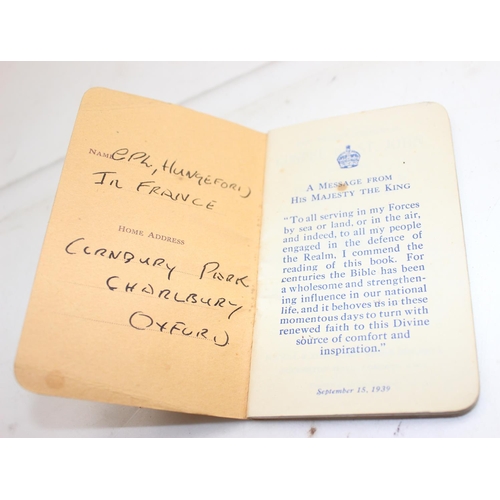 NAME CPL, HUNGEFORD
IN FRANCE
HOME ADDRESS
CORNBURY PARK
CHARLBURY
OXFORD
A MESSAGE FROM
HIS MAJESTY THE KING
"To all serving in my Forces
by sea or land, or in the air,
and indeed, to all my people
engaged in the defence of
the Realm, I commend the
reading of this book. For
centuries the Bible has been
a wholesome and strengthen-
ing influence in our national
life, and it behoves us in these
momentous days to turn with
renewed faith to this Divine
source of comfort and
inspiration."
September 15, 1939